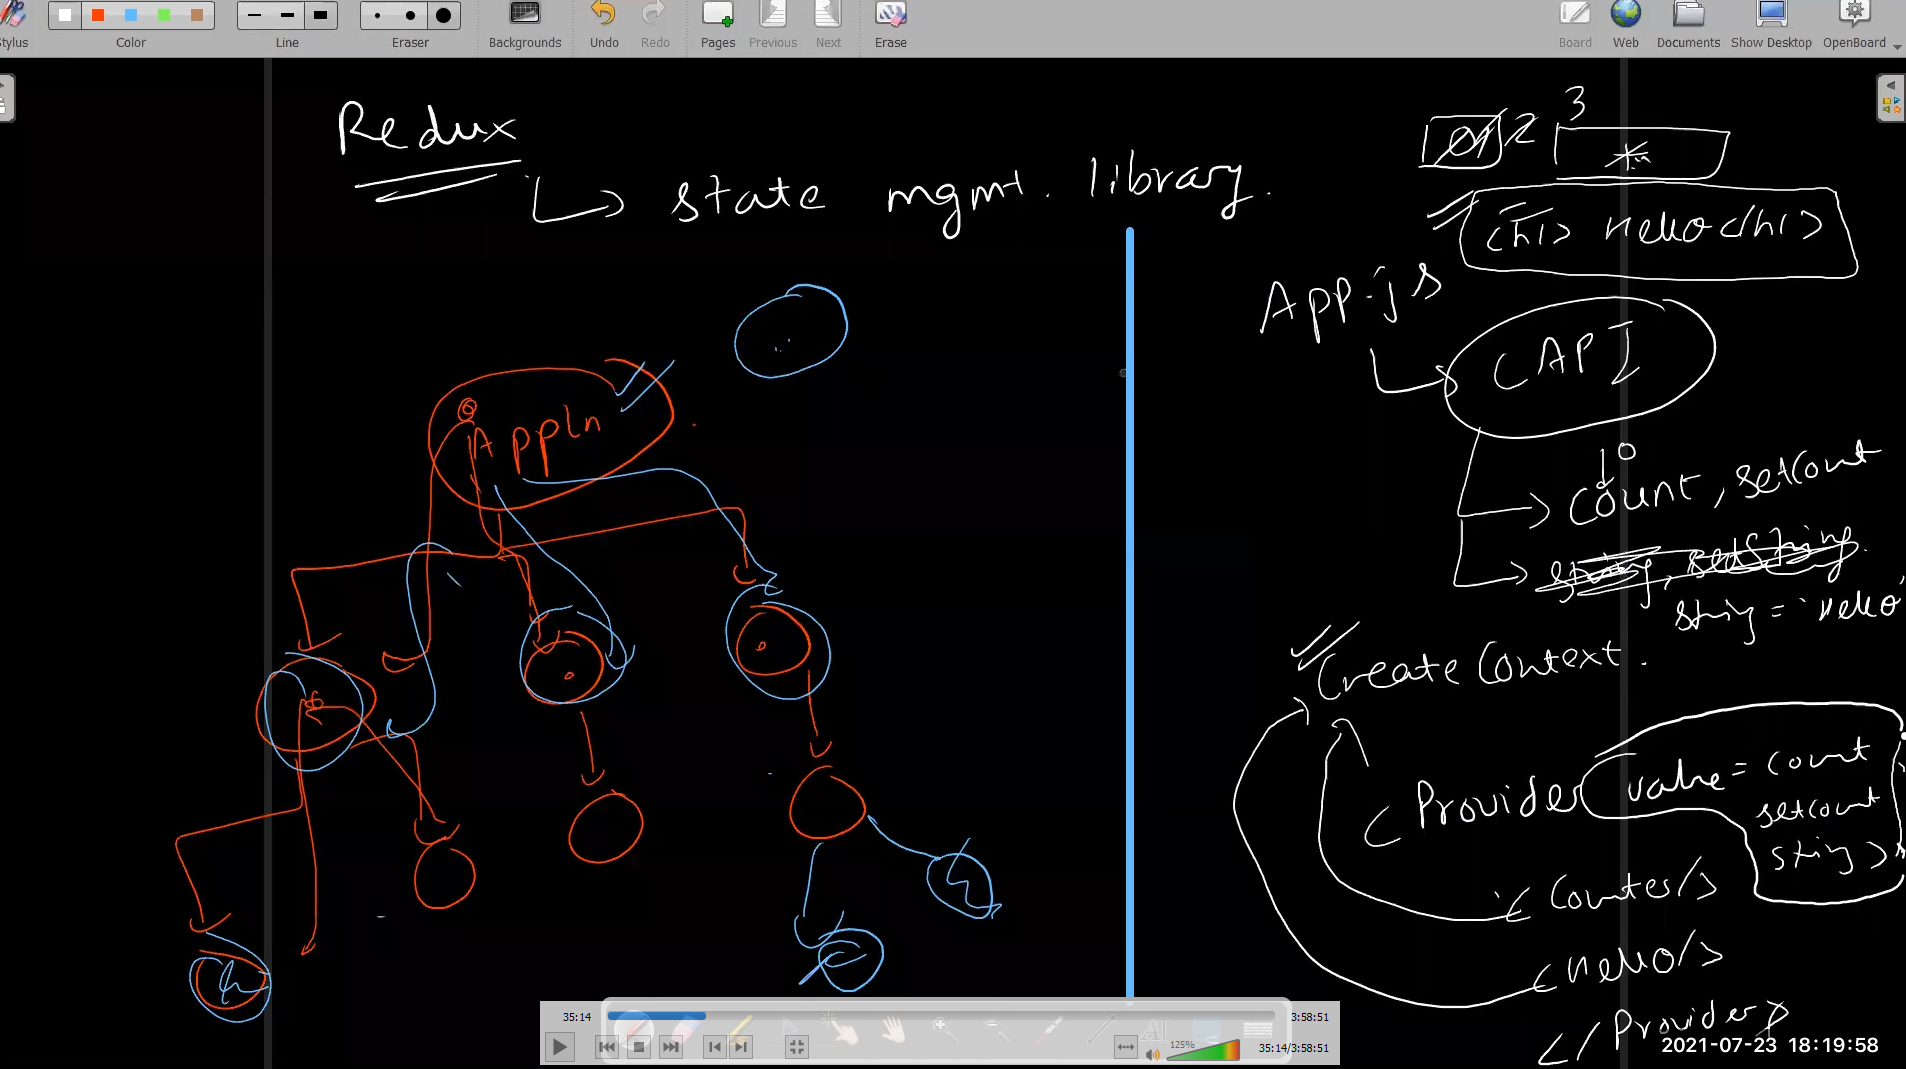 Stylus
Color
Line
Eraser
Backgrounds
Undo
Redo
Pages
Previous
Next
Erase
Board
Web
Documents
Show Desktop
OpenBoard
Redux
state mgmt. library.
Appln
2
3
<h1> Hello </h1>
App.js
CAPI
0
Count, setCount
string, setString
string = 'Hello'
Create Context.
< Provider value = count
setcount
string >
< Counter />
< Hello />
</ Provider >
35:14
3:58:51
125%
35:14/3:58:51
2021-07-23 18:19:58